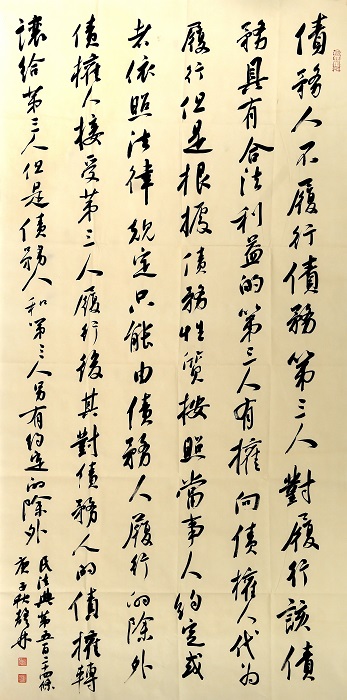 債務人不履行債務第三人對履行該債
務具有合法利益的第三人有權向債權人代為
履行但是根據債務性質按照當事人約定或
者依照法律規定只能由債務人履行的除外
債權人接受第三人履行後其對債務人的債權轉
讓給第三人但是債務人和第三人另有約定的除外
民法典第五百二十四條
庚子秋